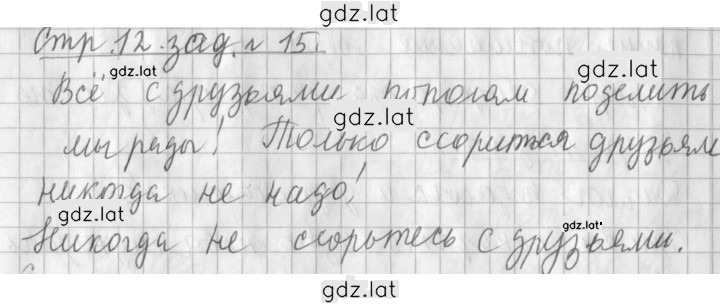 gdz.lat
Стр. 12. зад. № 15.
gdz.lat gdz.lat
Всё с друзьями пополам поделить
gdz.lat
мы рады! Только ссориться друзьям
никогда не надо!
gdz.lat gdz.lat
Никогда не ссорьтесь с друзьями.
gdz.lat